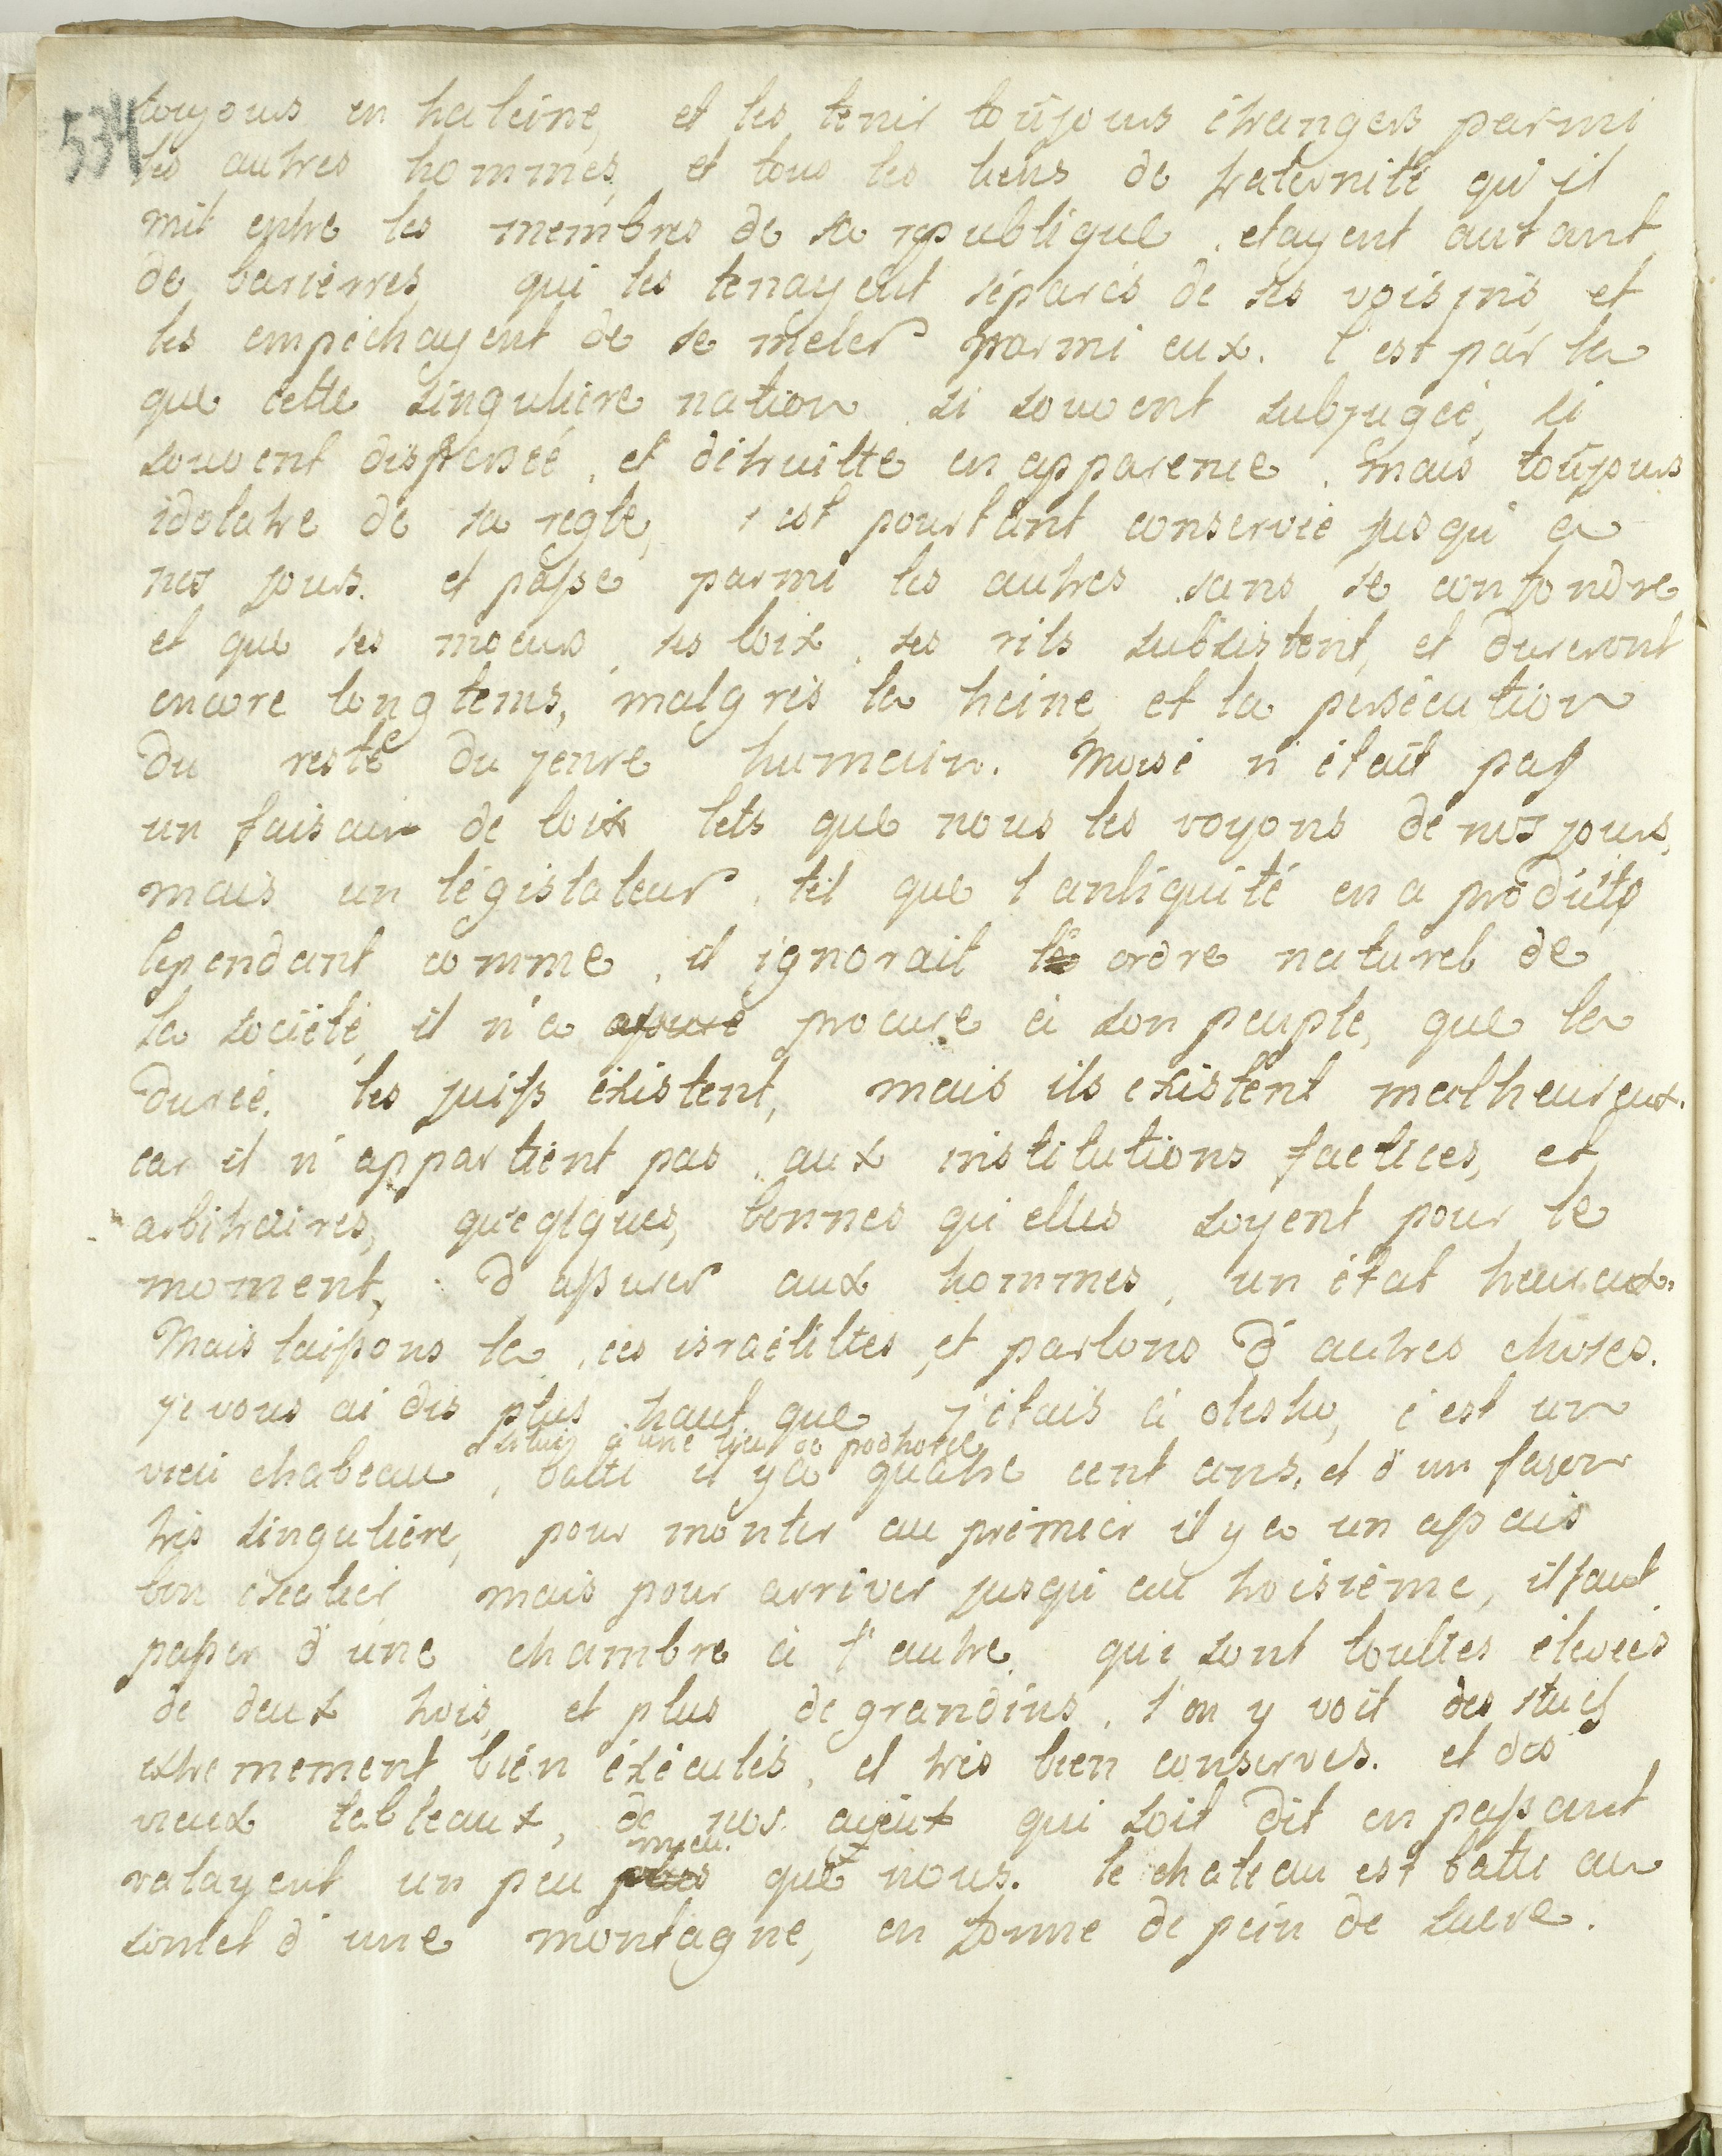 534
toujours en haleine, et les tenir toûjours étrangers parmi
les autres hommes, et tous les liens de fraternité qu'il
mit entre les membres de sa republique, etayent autant
de barierres qui les tenayent séparés de ses voisins, et
les empéchayent de se méler parmi eux. C'est par la
que cette singuliere nation si souvent subjugée, si
souvent dispersée, et détruitte en apparence, mais toûjours
idolatre de sa regle, s'est pourtant conservée jusqu'a
nos jours. et passe parmi les autres sans se confondre
et que ses moeurs, ses loix, ses rits subsistent, et dureront
encore longtems, malgrés la haine, et la persécution
du reste du jenre humain. Moise n'était pas
un faisair de loix tels que nous les voyons de nos jours,
mais un législateur, tel que l'antiquité en a produits
Cependant comme, il ignorait le ordre naturel de
la sociëté, il n'a assuré procure à son peuple, que la
durée. les juifs éxistent, mais ils existent malheureux.
car il n'appartient pas, aux institutions factices, et
arbitraires, queqlques, bonnes qu'elles soyent pour le
moment, d'assurer aux hommes, un état heureux.
Mais laissons la, ces israélittes, et parlons d'autres choses.
je vous ai dis plus haut que, j'étais à olesko, c'est un
située à une lieu de podhorce
vieu chabeau, batti il y a quatre cent ans, et d'un façon
tres singuliere, pour monter au premier il y a un assais
bon escalier, mais pour arriver jusqu'au troisiéme, il faut
passer d'une chambre à l'autre, qui sont touttes élevées
de deux trois, et plus de grandins, l'on y voit des stucs
extremement bién éxécutés, et trés bien conservés. et des
vieux tableaux, de nos ayeux qui soit dit en passant
myeu.
valayent un peu plus que nous. le chateau est batti au
somet d'une montagne, en forme de pein de sucre.